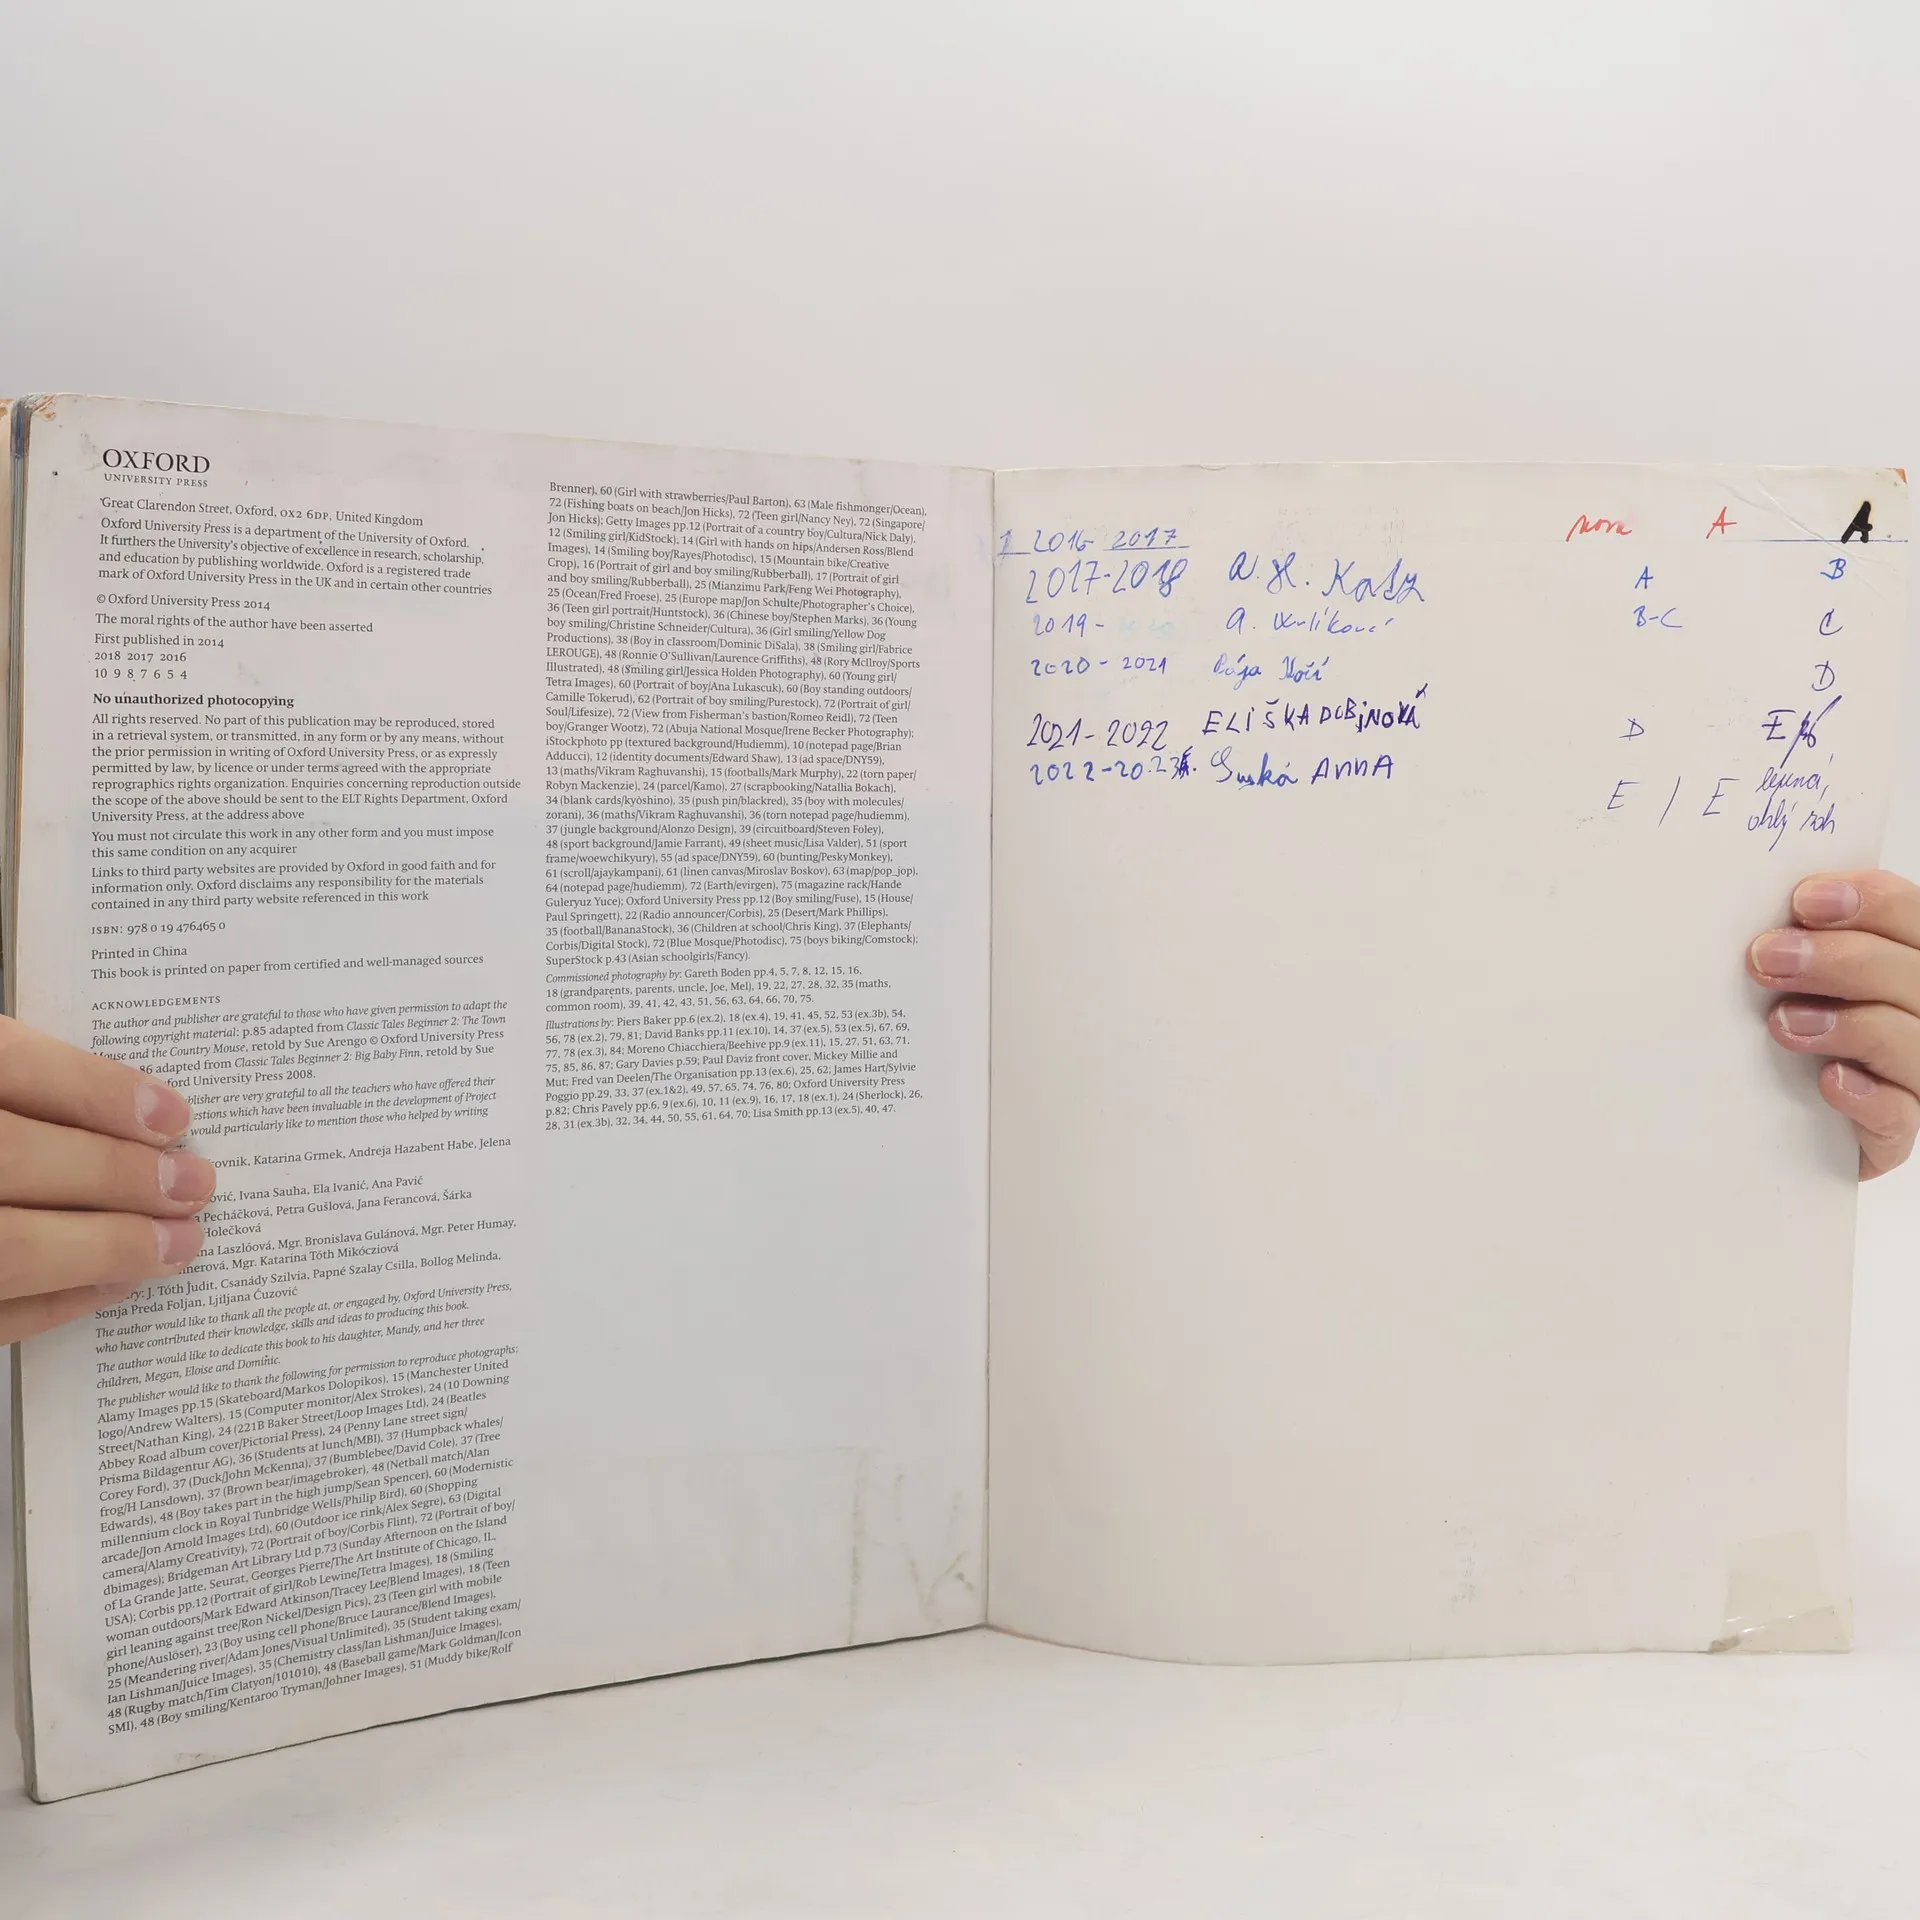 OXFORD
UNIVERSITY PRESS
Great Clarendon Street, Oxford, OX2 6DP, United Kingdom
Oxford University Press is a department of the University of Oxford.
It furthers the University's objective of excellence in research, scholarship,
and education by publishing worldwide. Oxford is a registered trade
mark of Oxford University Press in the UK and in certain other countries
© Oxford University Press 2014
The moral rights of the author have been asserted
First published in 2014
2018 2017 2016
10 9 8 7 6 5 4
No unauthorized photocopying
All rights reserved. No part of this publication may be reproduced, stored
in a retrieval system, or transmitted, in any form or by any means, without
the prior permission in writing of Oxford University Press, or as expressly
permitted by law, by licence or under terms agreed with the appropriate
reprographics rights organization. Enquiries concerning reproduction outside
the scope of the above should be sent to the ELT Rights Department, Oxford
University Press, at the address above
You must not circulate this work in any other form and you must impose
this same condition on any acquirer
Links to third party websites are provided by Oxford in good faith and for
information only. Oxford disclaims any responsibility for the materials
contained in any third party website referenced in this work
ISBN: 978 0 19 476465 0
Printed in China
This book is printed on paper from certified and well-managed sources
ACKNOWLEDGEMENTS
The author and publisher are grateful to those who have given permission to adapt the
following copyright material: p.85 adapted from Classic Tales Beginner 2: The Town
Mouse and the Country Mouse, retold by Sue Arengo © Oxford University Press
86 adapted from Classic Tales Beginner 2: Big Baby Finn, retold by Sue
ford University Press 2008.
blisher are very grateful to all the teachers who have offered their
estions which have been invaluable in the development of Project
would particularly like to mention those who helped by writing
rovnik, Katarina Grmek, Andreja Hazabent Habe, Jelena
ović, Ivana Sauha, Ela Ivanić, Ana Pavić
a Pecháčková, Petra Gušlová, Jana Ferancová, Šárka
Holečková
na Laszlóová, Mgr. Bronislava Gulánová, Mgr. Peter Humay,
nnerová, Mgr. Katarína Tóth Mikócziová
ry: J. Tóth Judit, Csanády Szilvia, Papné Szalay Csilla, Bollog Melinda,
Sonja Preda Foljan, Ljiljana Ćuzović
The author would like to thank all the people at, or engaged by, Oxford University Press,
who have contributed their knowledge, skills and ideas to producing this book.
The author would like to dedicate this book to his daughter, Mandy, and her three
children, Megan, Eloise and Dominic.
The publisher would like to thank the following for permission to reproduce photographs:
Alamy Images pp.15 (Skateboard/Markos Dolopikos), 15 (Manchester United
logo/Andrew Walters), 15 (Computer monitor/Alex Strokes), 24 (10 Downing
Street/Nathan King), 24 (221B Baker Street/Loop Images Ltd), 24 (Beatles
Abbey Road album cover/Pictorial Press), 24 (Penny Lane street sign/
Prisma Bildagentur AG), 36 (Students at lunch/MBI), 37 (Humpback whales/
Corey Ford), 37 (Duck/John McKenna), 37 (Bumblebee/David Cole), 37 (Tree
frog/H Lansdown), 37 (Brown bear/imagebroker), 48 (Netball match/Alan
Edwards), 48 (Boy takes part in the high jump/Sean Spencer), 60 (Modernistic
millennium clock in Royal Tunbridge Wells/Philip Bird), 60 (Shopping
arcade/Jon Arnold Images Ltd), 60 (Outdoor ice rink/Alex Segre), 63 (Digital
camera/Alamy Creativity), 72 (Portrait of boy/Corbis Flint), 72 (Portrait of boy/
dbimages); Bridgeman Art Library Ltd p.73 (Sunday Afternoon on the Island
of La Grande Jatte, Seurat, Georges Pierre/The Art Institute of Chicago, IL,
USA); Corbis pp.12 (Portrait of girl/Rob Lewine/Tetra Images), 18 (Smiling
woman outdoors/Mark Edward Atkinson/Tracey Lee/Blend Images), 18 (Teen
girl leaning against tree/Ron Nickel/Design Pics), 23 (Teen girl with mobile
phone/Auslöser), 23 (Boy using cell phone/Bruce Laurance/Blend Images),
25 (Meandering river/Adam Jones/Visual Unlimited), 35 (Student taking exam/
Ian Lishman/Juice Images), 35 (Chemistry class/Ian Lishman/Juice Images),
48 (Rugby match/Tim Clatyon/101010), 48 (Baseball game/Mark Goldman/Icon
SMI), 48 (Boy smiling/Kentaroo Tryman/Johner Images), 51 (Muddy bike/Rolf
Brenner), 60 (Girl with strawberries/Paul Barton), 63 (Male fishmonger/Ocean),
72 (Fishing boats on beach/Jon Hicks), 72 (Teen girl/Nancy Ney), 72 (Singapore/
Jon Hicks); Getty Images pp.12 (Portrait of a country boy/Cultura/Nick Daly),
12 (Smiling girl/KidStock), 14 (Girl with hands on hips/Andersen Ross/Blend
Images), 14 (Smiling boy/Rayes/Photodisc), 15 (Mountain bike/Creative
Crop), 16 (Portrait of girl and boy smiling/Rubberball), 17 (Portrait of girl
and boy smiling/Rubberball), 25 (Mianzimu Park/Feng Wei Photography),
25 (Ocean/Fred Froese), 25 (Europe map/Jon Schulte/Photographer's Choice),
36 (Teen girl portrait/Huntstock), 36 (Chinese boy/Stephen Marks), 36 (Young
boy smiling/Christine Schneider/Cultura), 36 (Girl smiling/Yellow Dog
Productions), 38 (Boy in classroom/Dominic DiSala), 38 (Smiling girl/Fabrice
LEROUGE), 48 (Ronnie O'Sullivan/Laurence Griffiths), 48 (Rory McIlroy/Sports
Illustrated), 48 (Smiling girl/Jessica Holden Photography), 60 (Young girl/
Tetra Images), 60 (Portrait of boy/Ana Lukascuk), 60 (Boy standing outdoors/
Camille Tokerud), 62 (Portrait of boy smiling/Purestock), 72 (Portrait of girl/
Soul/Lifesize), 72 (View from Fisherman's bastion/Romeo Reidl), 72 (Teen
boy/Granger Wootz), 72 (Abuja National Mosque/Irene Becker Photography);
iStockphoto pp (textured background/Hudiemm), 10 (notepad page/Brian
Adducci), 12 (identity documents/Edward Shaw), 13 (ad space/DNY59),
13 (maths/Vikram Raghuvanshi), 15 (footballs/Mark Murphy), 22 (torn paper/
Robyn Mackenzie), 24 (parcel/Kamo), 27 (scrapbooking/Natallia Bokach),
34 (blank cards/kyoshino), 35 (push pin/blackred), 35 (boy with molecules/
zorani), 36 (maths/Vikram Raghuvanshi), 36 (torn notepad page/hudiemm),
37 (jungle background/Alonzo Design), 39 (circuitboard/Steven Foley),
48 (sport background/Jamie Farrant), 49 (sheet music/Lisa Valder), 51 (sport
frame/woewchikyury), 55 (ad space/DNY59), 60 (bunting/PeskyMonkey),
61 (scroll/ajaykampani), 61 (linen canvas/Miroslav Boskov), 63 (map/pop_jop),
64 (notepad page/hudiemm), 72 (Earth/evirgen), 75 (magazine rack/Hande
Guleryuz Yuce); Oxford University Press pp.12 (Boy smiling/Fuse), 15 (House/
Paul Springett), 22 (Radio announcer/Corbis), 25 (Desert/Mark Phillips),
35 (football/BananaStock), 36 (Children at school/Chris King), 37 (Elephants/
Corbis/Digital Stock), 72 (Blue Mosque/Photodisc), 75 (boys biking/Comstock);
SuperStock p.43 (Asian schoolgirls/Fancy).
Commissioned photography by: Gareth Boden pp.4, 5, 7, 8, 12, 15, 16,
18 (grandparents, parents, uncle, Joe, Mel), 19, 22, 27, 28, 32, 35 (maths,
common room), 39, 41, 42, 43, 51, 56, 63, 64, 66, 70, 75.
Illustrations by: Piers Baker pp.6 (ex.2), 18 (ex.4), 19, 41, 45, 52, 53 (ex.3b), 54,
56, 78 (ex.2), 79, 81; David Banks pp.11 (ex.10), 14, 37 (ex.5), 53 (ex.5), 67, 69,
77, 78 (ex.3), 84; Moreno Chiacchiera/Beehive pp.9 (ex.11), 15, 27, 51, 63, 71,
75, 85, 86, 87; Gary Davies p.59; Paul Daviz front cover, Mickey Millie and
Mut; Fred van Deelen/The Organisation pp.13 (ex.6), 25, 62; James Hart/Sylvie
Poggio pp.29, 33, 37 (ex.1&2), 49, 57, 65, 74, 76, 80; Oxford University Press
p.82; Chris Pavely pp.6, 9 (ex.6), 10, 11 (ex.9), 16, 17, 18 (ex.1), 24 (Sherlock), 26,
28, 31 (ex.3b), 32, 34, 44, 50, 55, 61, 64, 70; Lisa Smith pp.13 (ex.5), 40, 47.
1 2016-2017 nova A A
2017-2018 A B
2019- A. B-C C
2020-2021 D
2021-2022 ELIŠKA DOBJNOVÁ D E
2022-2023 ANNA E / E